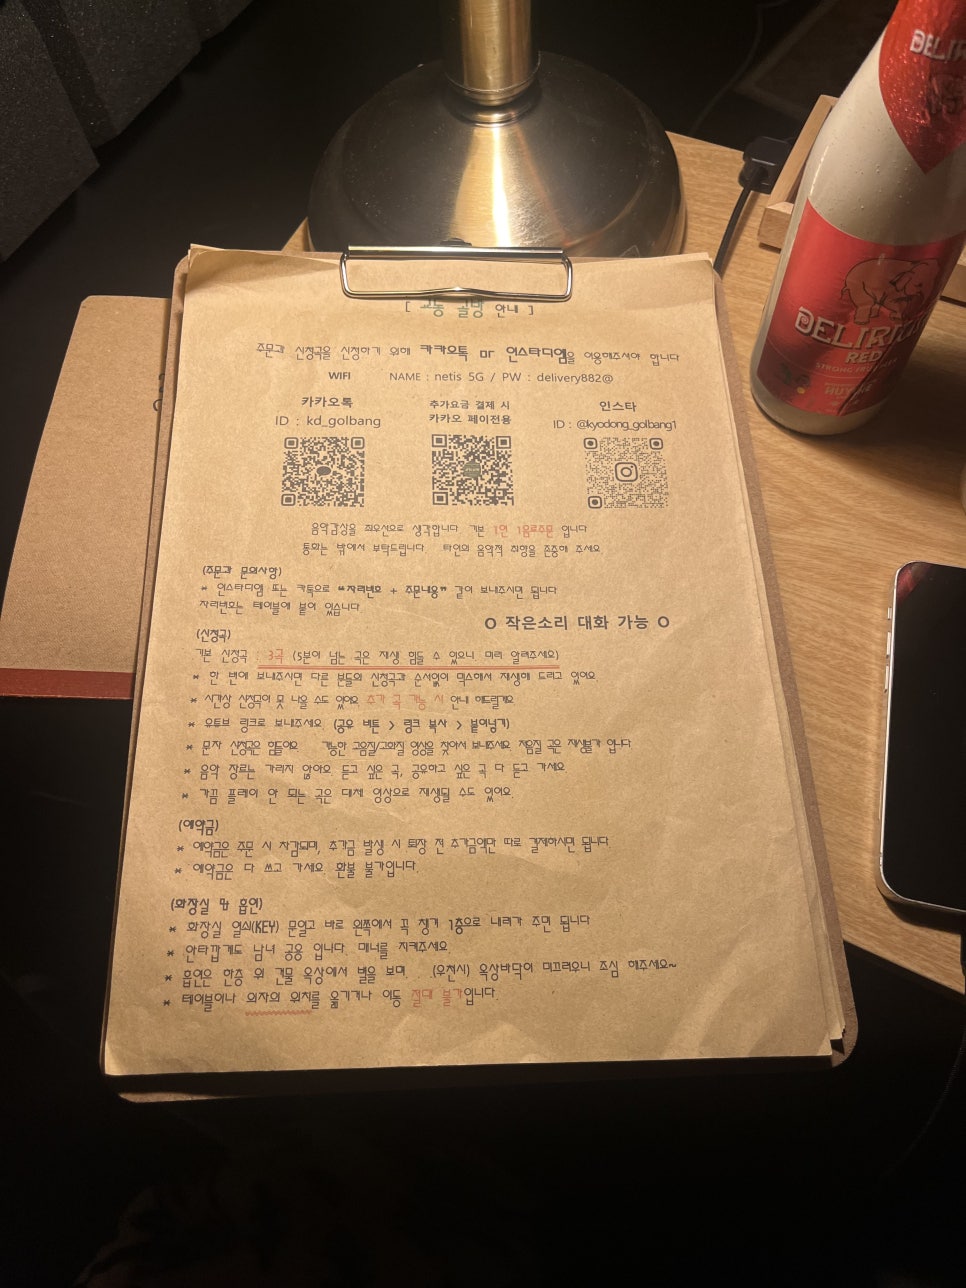 [ 교동 골방 안내 ]
주문과 신청곡을 신청하기 위해 카카오톡 or 인스타디엠을 이용해주셔야 합니다
WIFI NAME : netis 5G / PW : delivery882@
카카오톡
ID : kd_golbang
추가요금 결제 시
카카오 페이전용
인스타
ID : @kyodong_golbang1
음악감상을 최우선으로 생각합니다 기본 1인 1음료주문 입니다
통화는 밖에서 부탁드립니다 타인의 음악적 취향을 존중해 주세요
(주문과 문의사항)
* 인스타디엠 또는 카톡으로 "자리번호 + 주문내용" 같이 보내주시면 됩니다
자리번호는 테이블에 붙어 있습니다.
O 작은소리 대화 가능 O
(신청곡)
기본 신청곡 : 3곡 (5분이 넘는 곡은 재생 힘들 수 있으니 미리 알려주세요)
* 한 번에 보내주시면 다른 분들의 신청곡과 순서없이 믹스해서 재생해 드리고 있어요
* 시간상 신청곡이 못 나올 수도 있어요 추가 곡 가능 시 안내 해드릴게요
* 유튜브 링크로 보내주세요 (공유 버튼 > 링크 복사 > 붙이넣기)
* 문자 신청곡은 힘들어요 가능한 고음질/고화질 영상을 찾아서 보내주세요 저음질 곡은 재생불가 입니다
* 음악 장르는 가리지 않아요 듣고 싶은 곡, 공유하고 싶은 곡 다 듣고 가세요
* 가끔 플레이 안 되는 곡은 대체 영상으로 재생될 수도 있어요
(예약금)
* 예약금은 주문 시 차감되며, 추가금 발생 시 퇴장 전 추가금액만 따로 결제하시면 됩니다
* 예약금은 다 쓰고 가세요 환불 불가입니다
(화장실 및 흡연)
* 화장실 열쇠(KEY) 문열고 바로 왼쪽에서 꼭 챙겨 1층으로 내려가 주면 됩니다
* 안타깝게도 남녀 공용 입니다. 매너를 지켜주세요
* 흡연은 한층 위 건물 옥상에서 별을 보며 (우천시) 옥상바닥이 미끄러우니 조심 해주세요~
* 테이블이나 의자의 위치를 옮기거나 이동 절대 불가입니다.
DELIRIUM
RED
STRONG